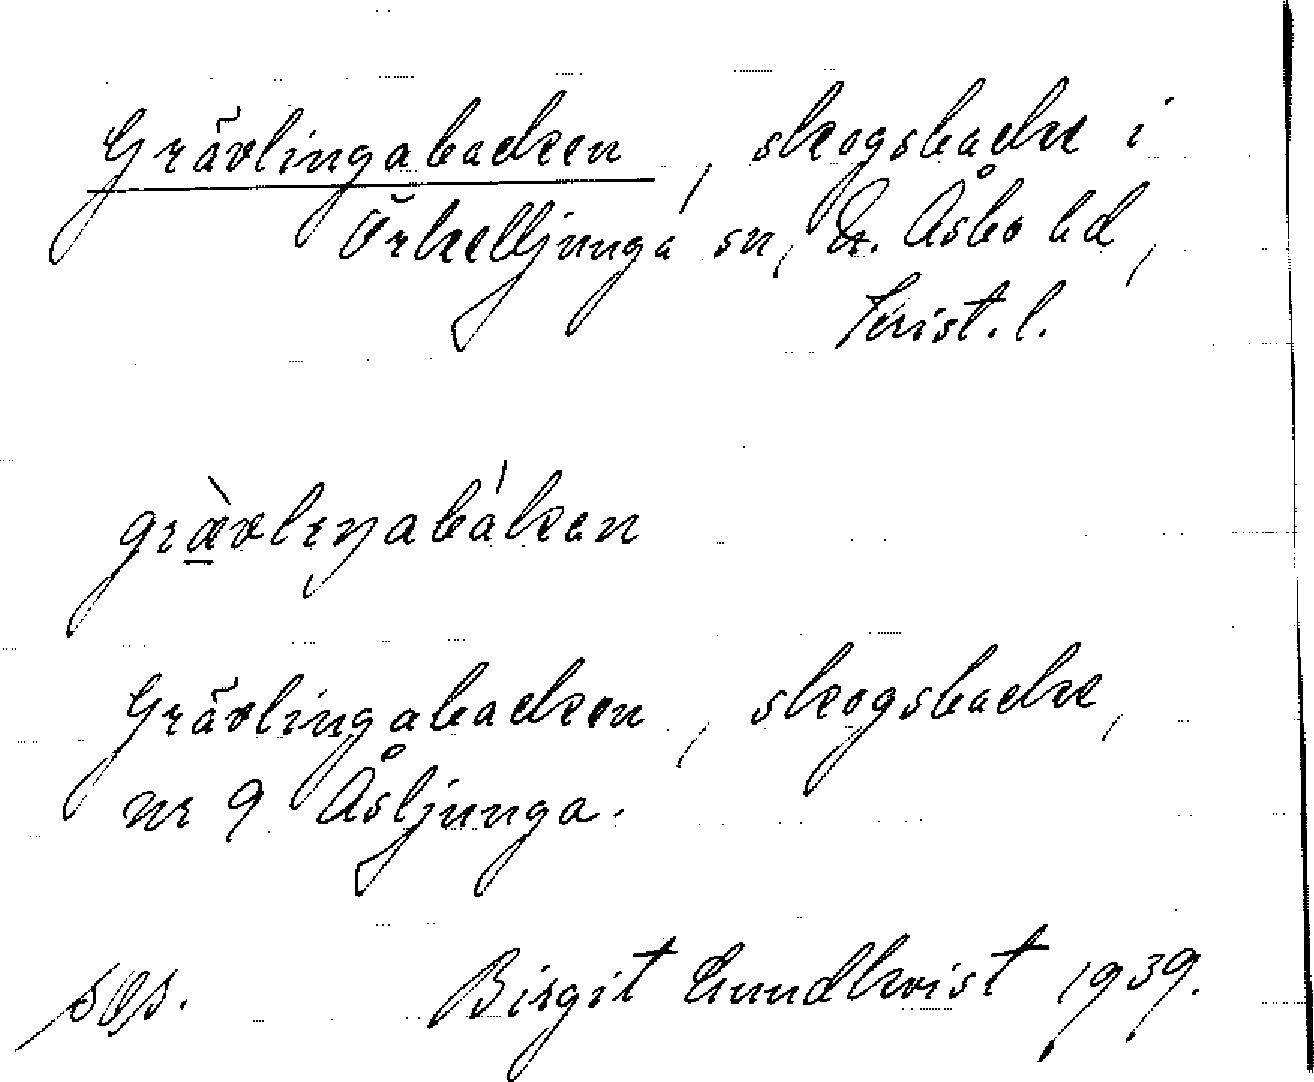 Grävlingabacken, skogsbacke i
Örkelljunga sn, N. Åsbo hd,
Krist. l.
græ̀vlıŋabákan
Grävlingabacken, skogsbacke,
nr 9 Åsljunga.
Birgit Lundkvist 1939.